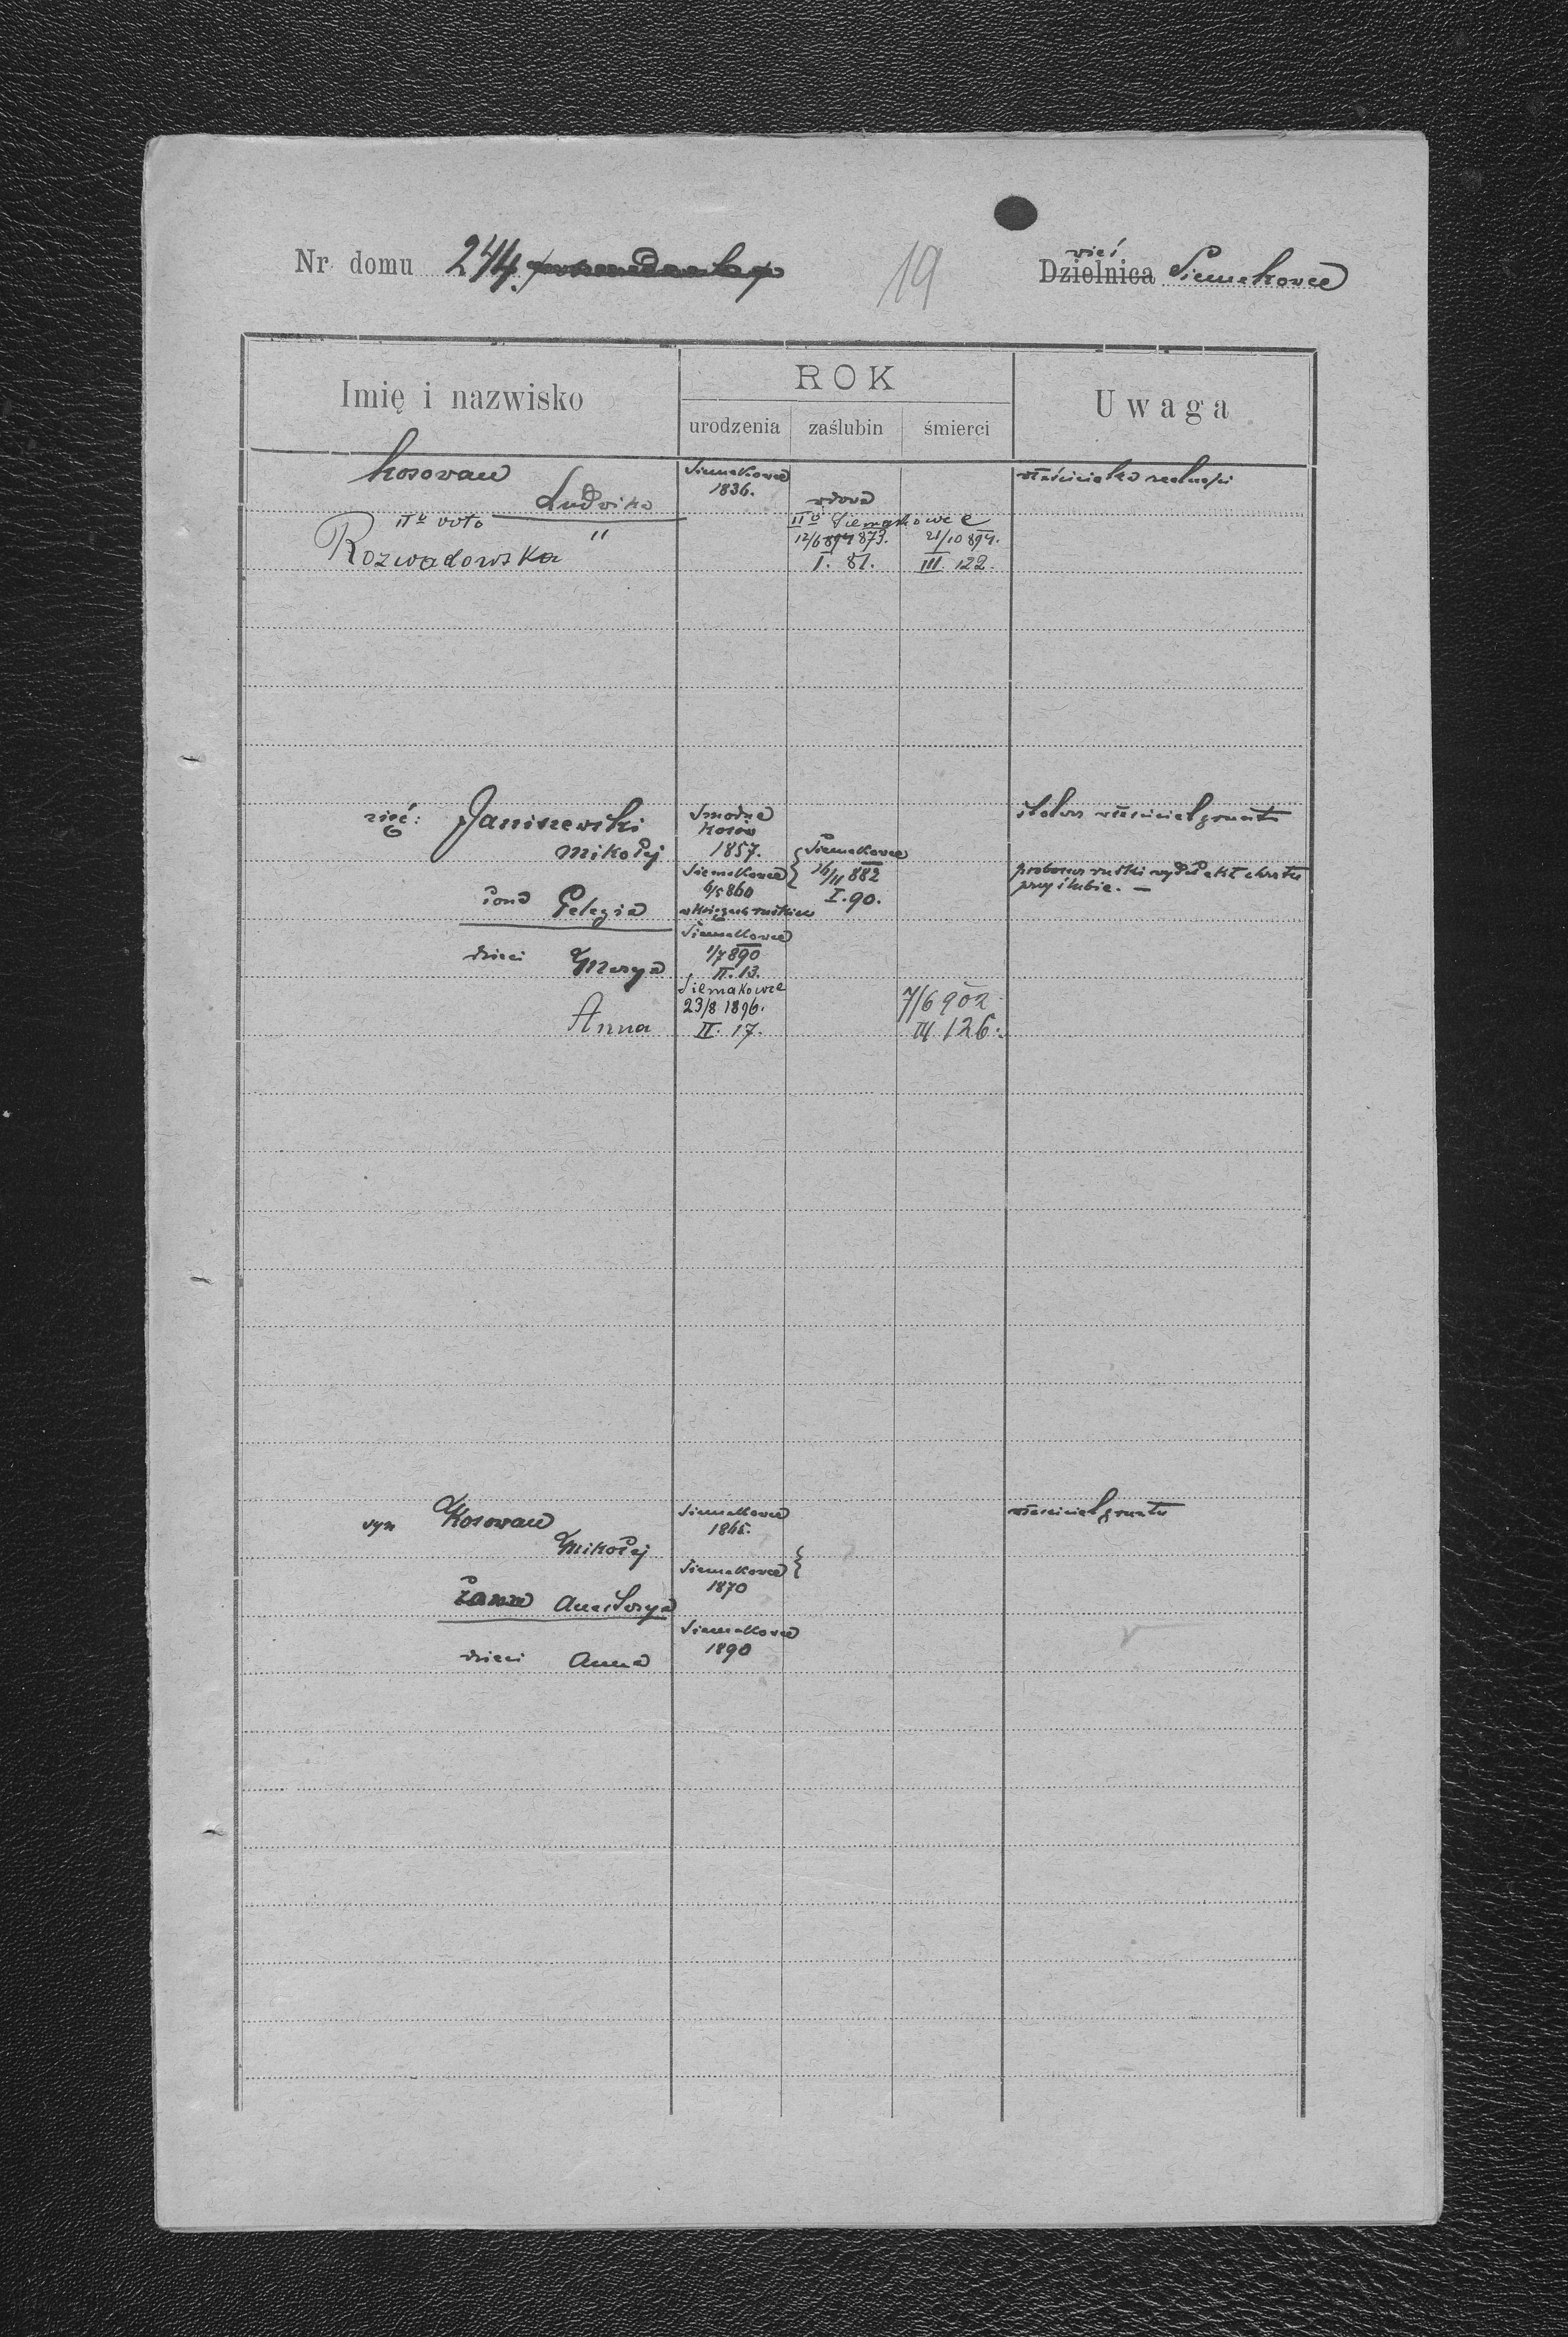 Nr. domu 244. 19 wieś
Dzielnica Siemakowce
Imię i nazwisko ROK Uwaga
urodzenia zaślubin śmierci
Kosowan Siemakowce właścicielka realności
Ludwika 1836. wdowa
IIo voto IIo Siemakowce
Rozwadowska " 12/6 894 873. 21/10 894.
I. 81. III. 122.
zięć: Janiszewski Smodne szlachcic właściciel gruntu
Kosów
Mikołaj 1857. Siemakowce
Siemakowce 16/11 882 proboszcz ruski wydał akt chrztu
6/5 860 I. 90. przy ślubie. —
żona Pelagia w księgach ruskich
Siemakowce
dzieci Marya 1/7 890
II. 13.
Siemakowce
23/8 1896. 7/6 902
Anna II. 17. III 126.
syn Kosowan Siemakowce właściciel gruntu
Mikołaj 1865.
Siemakowce
żona Anastazya 1870
Siemakowce
dzieci Anna 1890